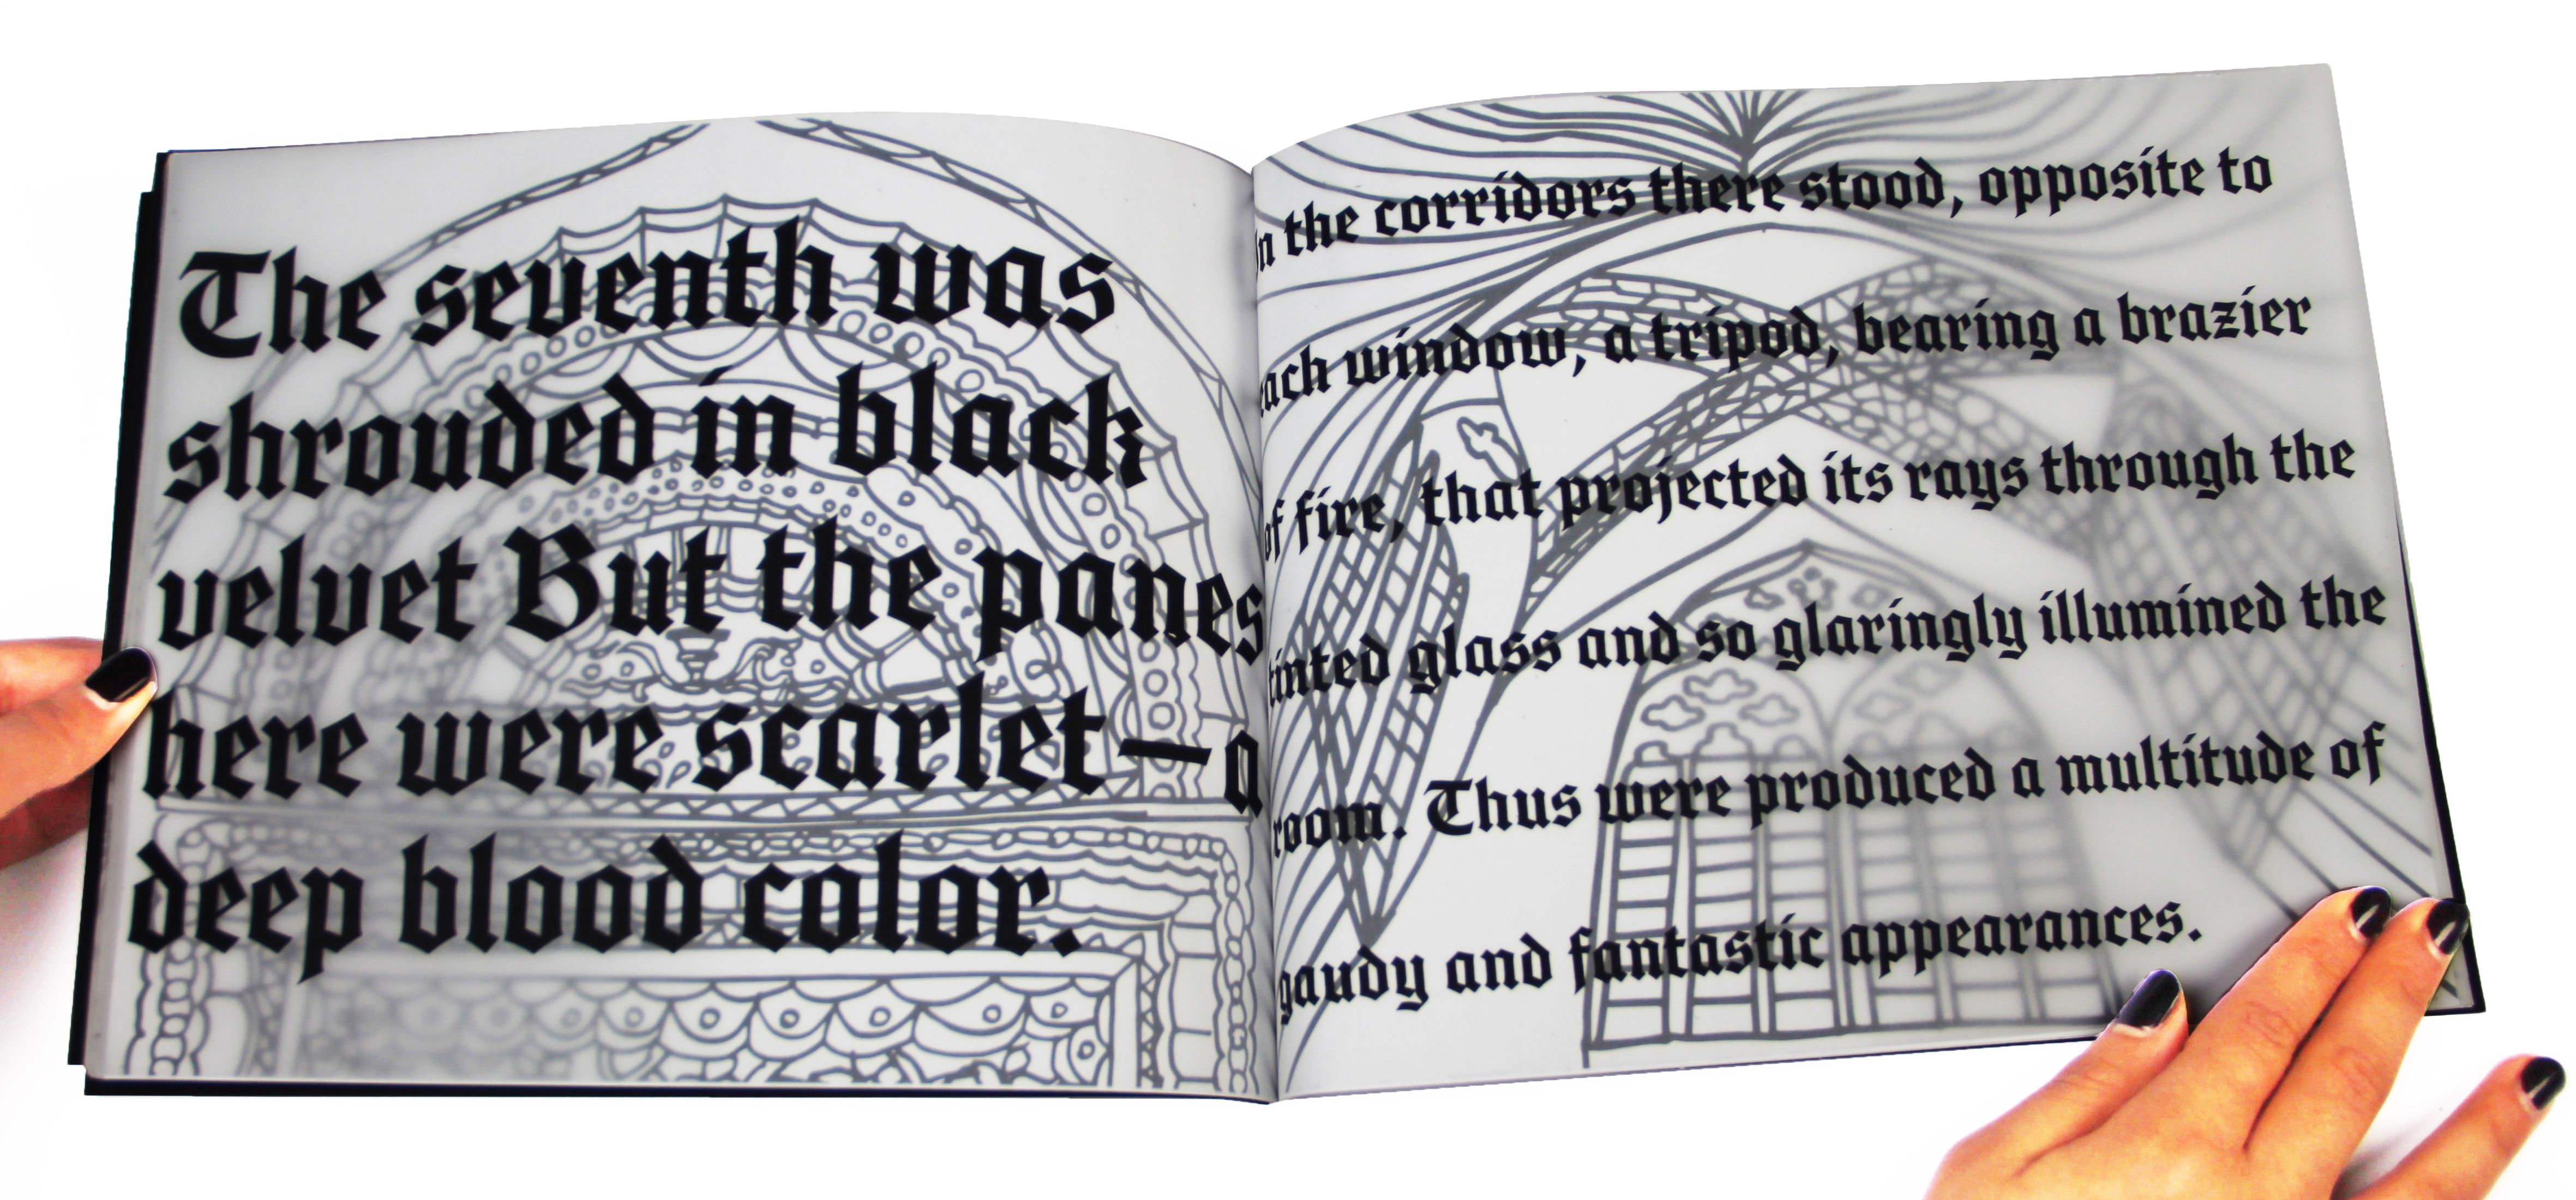 The seventh was
shrouded in black
velvet But the panes
here were scarlet—a
deep blood color.
In the corridors there stood, opposite to
each window, a tripod, bearing a brazier
of fire, that projected its rays through the
tinted glass and so glaringly illumined the
room. Thus were produced a multitude of
gaudy and fantastic appearances.